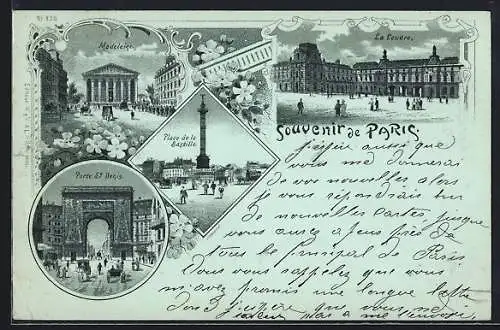 Madeleine.
Le Louvre.
Place de la
Bastille
Porte St Denis.
Souvenir de PARIS.
j'espère aussi que
vous me donnerai
de vos nouvelles alors
je vous répondrais sur
de nouvelles cartes, jusque
vous aurez a peu près
tous le principal de Paris
Vous vous rappelez que vous
m'avez promis une longue lettre
que vous ne
pas a me l'envoyer